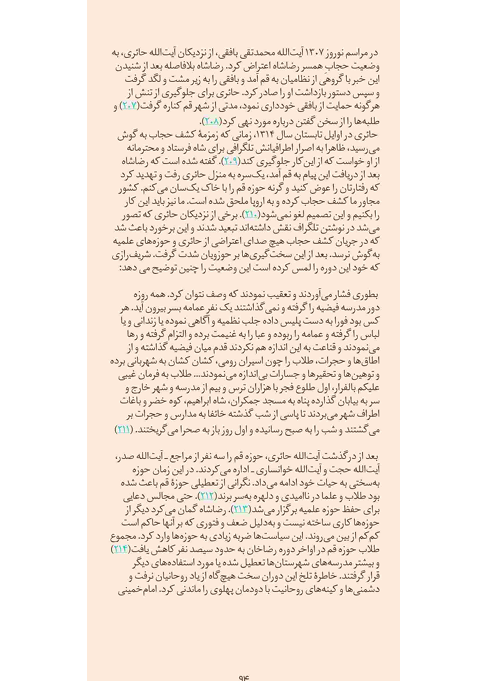 در مراسم نوروز ۱۳۰۷ آیت‌الله محمدتقی بافقی، از نزدیکان آیت‌الله حائری، به
وضعیت حجاب همسر رضاشاه اعتراض کرد. رضاشاه بلافاصله بعد از شنیدن
این خبر با گروهی از نظامیان به قم آمد و بافقی را به زیر مشت و لگد گرفت
و سپس دستور بازداشت او را صادر کرد. حائری برای جلوگیری از تنش از
هرگونه حمایت از بافقی خودداری نمود، مدتی از شهر قم کناره گرفت(۲۰۷) و
طلبه‌ها را از سخن گفتن درباره مورد نهی کرد(۲۰۸).
حائری در اوایل تابستان سال ۱۳۱۴، زمانی که زمزمهٔ کشف حجاب به گوش
می‌رسید، ظاهرا به اصرار اطرافیانش تلگرافی برای شاه فرستاد و محترمانه
از او خواست که از این کار جلوگیری کند(۲۰۹). گفته شده است که رضاشاه
بعد از دریافت این پیام به قم آمد، یک‌سره به منزل حائری رفت و تهدید کرد
که رفتارتان را عوض کنید و گرنه حوزه قم را با خاک یک‌سان می‌کنم. کشور
مجاور ما کشف حجاب کرده و به اروپا ملحق شده است. ما نیز باید این کار
را بکنیم و این تصمیم لغو نمی‌شود(۲۱۰). برخی از نزدیکان حائری که تصور
می‌شد در نوشتن تلگراف نقش داشته‌اند تبعید شدند و این برخورد باعث شد
که در جریان کشف حجاب هیچ صدای اعتراضی از حائری و حوزه‌های علمیه
به‌گوش نرسد. بعد از این سخت‌گیری‌ها بر حوزویان شدت گرفت. شریف‌رازی
که خود این دوره را لمس کرده است این وضعیت را چنین توضیح می دهد:
بطوری فشار می‌آوردند و تعقیب نمودند که وصف نتوان کرد. همه روزه
دور مدرسه فیضیه را گرفته و نمی‌گذاشتند یک نفر عمامه بسر بیرون آید. هر
کس بود فورا به دست پلیس داده جلب نظمیه و آگاهی نموده یا زندانی و یا
لباس را گرفته و عمامه را ربوده و عبا را به غنیمت برده و التزام گرفته و رها
می‌نمودند و قناعت به این اندازه هم نکردند قدم میان فیضیه گذاشته و از
اطاق‌ها و حجرات، طلاب را چون اسیران رومی، کشان کشان به شهربانی برده
و توهین‌ها و تحقیرها و جسارات بی‌اندازه می‌نمودند... طلاب به فرمان غیبی
علیکم بالفرار، اول طلوع فجر با هزاران ترس و بیم از مدرسه و شهر خارج و
سر به بیابان گذارده پناه به مسجد جمکران، شاه ابراهیم، کوه خضر و باغات
اطراف شهر می‌بردند تا پاسی از شب گذشته خائفا به مدارس و حجرات بر
می‌گشتند و شب را به صبح رسانیده و اول روز باز به صحرا می‌گریختند. (۲۱۱)
بعد از درگذشت آیت‌الله حائری، حوزه قم را سه نفر از مراجع ـ آیت‌الله صدر،
آیت‌الله حجت و آیت‌الله خوانساری ـ اداره می‌کردند. در این زمان حوزه
به‌سختی به حیات خود ادامه می‌داد. نگرانی از تعطیلی حوزهٔ قم باعث شده
بود طلاب و علما در ناامیدی و دلهره به‌سر برند(۲۱۲). حتی مجالس دعایی
برای حفظ حوزه علمیه برگزار می‌شد(۲۱۳). رضاشاه گمان می‌کرد دیگر از
حوزه‌ها کاری ساخته نیست و به‌دلیل ضعف و فتوری که بر آنها حاکم است
کم‌کم از بین می‌روند. این سیاست‌ها ضربه زیادی به حوزه‌ها وارد کرد. مجموع
طلاب حوزه قم در اواخر دوره رضاخان به حدود سیصد نفر کاهش یافت(۲۱۴)
و بیشتر مدرسه‌های شهرستان‌ها تعطیل شده یا مورد استفاده‌های دیگر
قرار گرفتند. خاطرهٔ تلخ این دوران سخت هیچ‌گاه از یاد روحانیان نرفت و
دشمنی‌ها و کینه‌های روحانیت با دودمان پهلوی را ماندنی کرد. امام‌خمینی